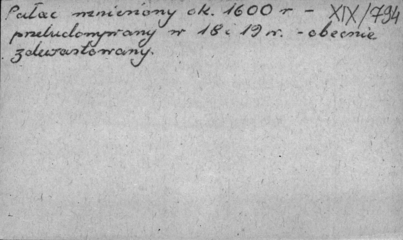 Pałac wzniesiony ok. 1600 r - XIX/794
przebudowywany w 18 i 19 w. - obecnie
zdewastowany.